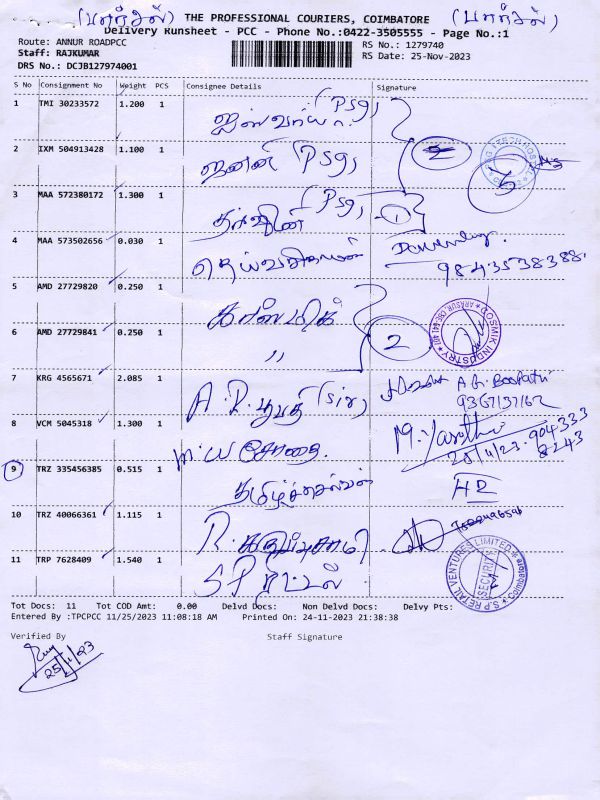 (பார்சல்) THE PROFESSIONAL COURIERS, COIMBATORE (பார்சல்)
Delivery Runsheet - PCC - Phone No.:0422-3505555 - Page No.:1
Route: ANNUR ROADPCC RS No.: 1279740
Staff: RAJKUMAR RS Date: 25-Nov-2023
DRS No.: DCJB127974001
S No Consignment No Weight PCS Consignee Details Signature
1 TMI 30233572 1.200 1 ஐஸ்வர்யா. (PSG)
2 IXM 504913428 1.100 1 ஜனனி (PSG) 2 5
3 MAA 572380172 1.300 1 தர்ஷினி (PSG) 1
4 MAA 573502656 0.030 1 தெய்வசிகாமணி 9843538388
5 AMD 27729820 0.250 1 காஸ்மிக் COSMIK INDUSTRY
6 AMD 27729841 0.250 1 " 2
7 KRG 4565671 2.085 1 A.R.பூபதி (sir) A.R. Boopathi
9367137162
8 VCM 5045318 1.300 1 M.U அசோதை. M.Yasotha
25/11/23. 904333
8243
9 TRZ 335456385 0.515 1 தமிழ்ச்செல்வன் HR
10 TRZ 40066361 1.115 1 R.கருப்புசாமி
11 TRP 7628409 1.540 1 S.P ரீட்டல் S.P RETAIL VENTURES LIMITED Coimbatore SECURITY
Tot Docs: 11 Tot COD Amt: 0.00 Delvd Docs: Non Delvd Docs: Delvy Pts:
Entered By :TPCPCC 11/25/2023 11:08:18 AM Printed On: 24-11-2023 21:38:38
Verified By Staff Signature
25/11/23